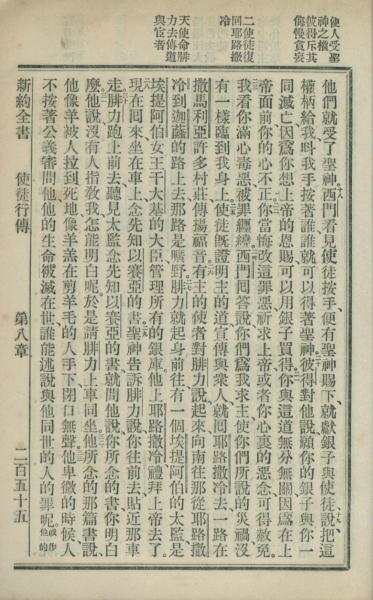 使人受聖
神之權
彼得斥其
傳慢貪妄
二使徒復
回耶路撒
冷
天使命腓
力去傳道
與宦者
他們就受了聖神西門看見使徒按手便有聖神賜下就獻銀子與使徒說把這
權柄給我呌我手按著誰誰就可以得著聖神彼得對他說願你的銀子與你一
同滅亡因爲你想上帝的恩賜可以用銀子買得你與這道無分無關因爲在上
帝面前你的心不正你當悔改這罪惡祈求上帝或者你心裏的惡念可得赦免
我看你滿心毒惡被罪纏繞西門囘答說你們爲我求主使你們所說的災禍沒
有一樣臨到我身上使徒旣證明主的道宣傳與衆人就囘耶路撒冷去一路在
撒馬利亞許多村莊傳揚福音有主的使者對腓力說起來向南往那從耶路撒
冷到迦薩的路上去那路是曠野腓力就起身前往有一個埃提阿伯的太監是
埃提阿伯女王干大基的大臣管理所有的銀庫他上耶路撒冷禮拜上帝去了
現在囘來坐在車上念先知以賽亞的書聖神告訴腓力說你往前去貼近那車
走腓力跑上前去聽見太監念先知以賽亞的書就問他說你所念的書你明白
麼他說沒有人指教我怎能明白呢於是請腓力上車同坐他所念的那篇書說
他像羊被人拉到死地像羊羔在剪羊毛的人手下閉口無聲他卑微的時候人
不按著公義審問他他的生命被滅在世誰能述說與他同世的人的罪呢
新約全書 使徒行傳 第八章 二百五十五